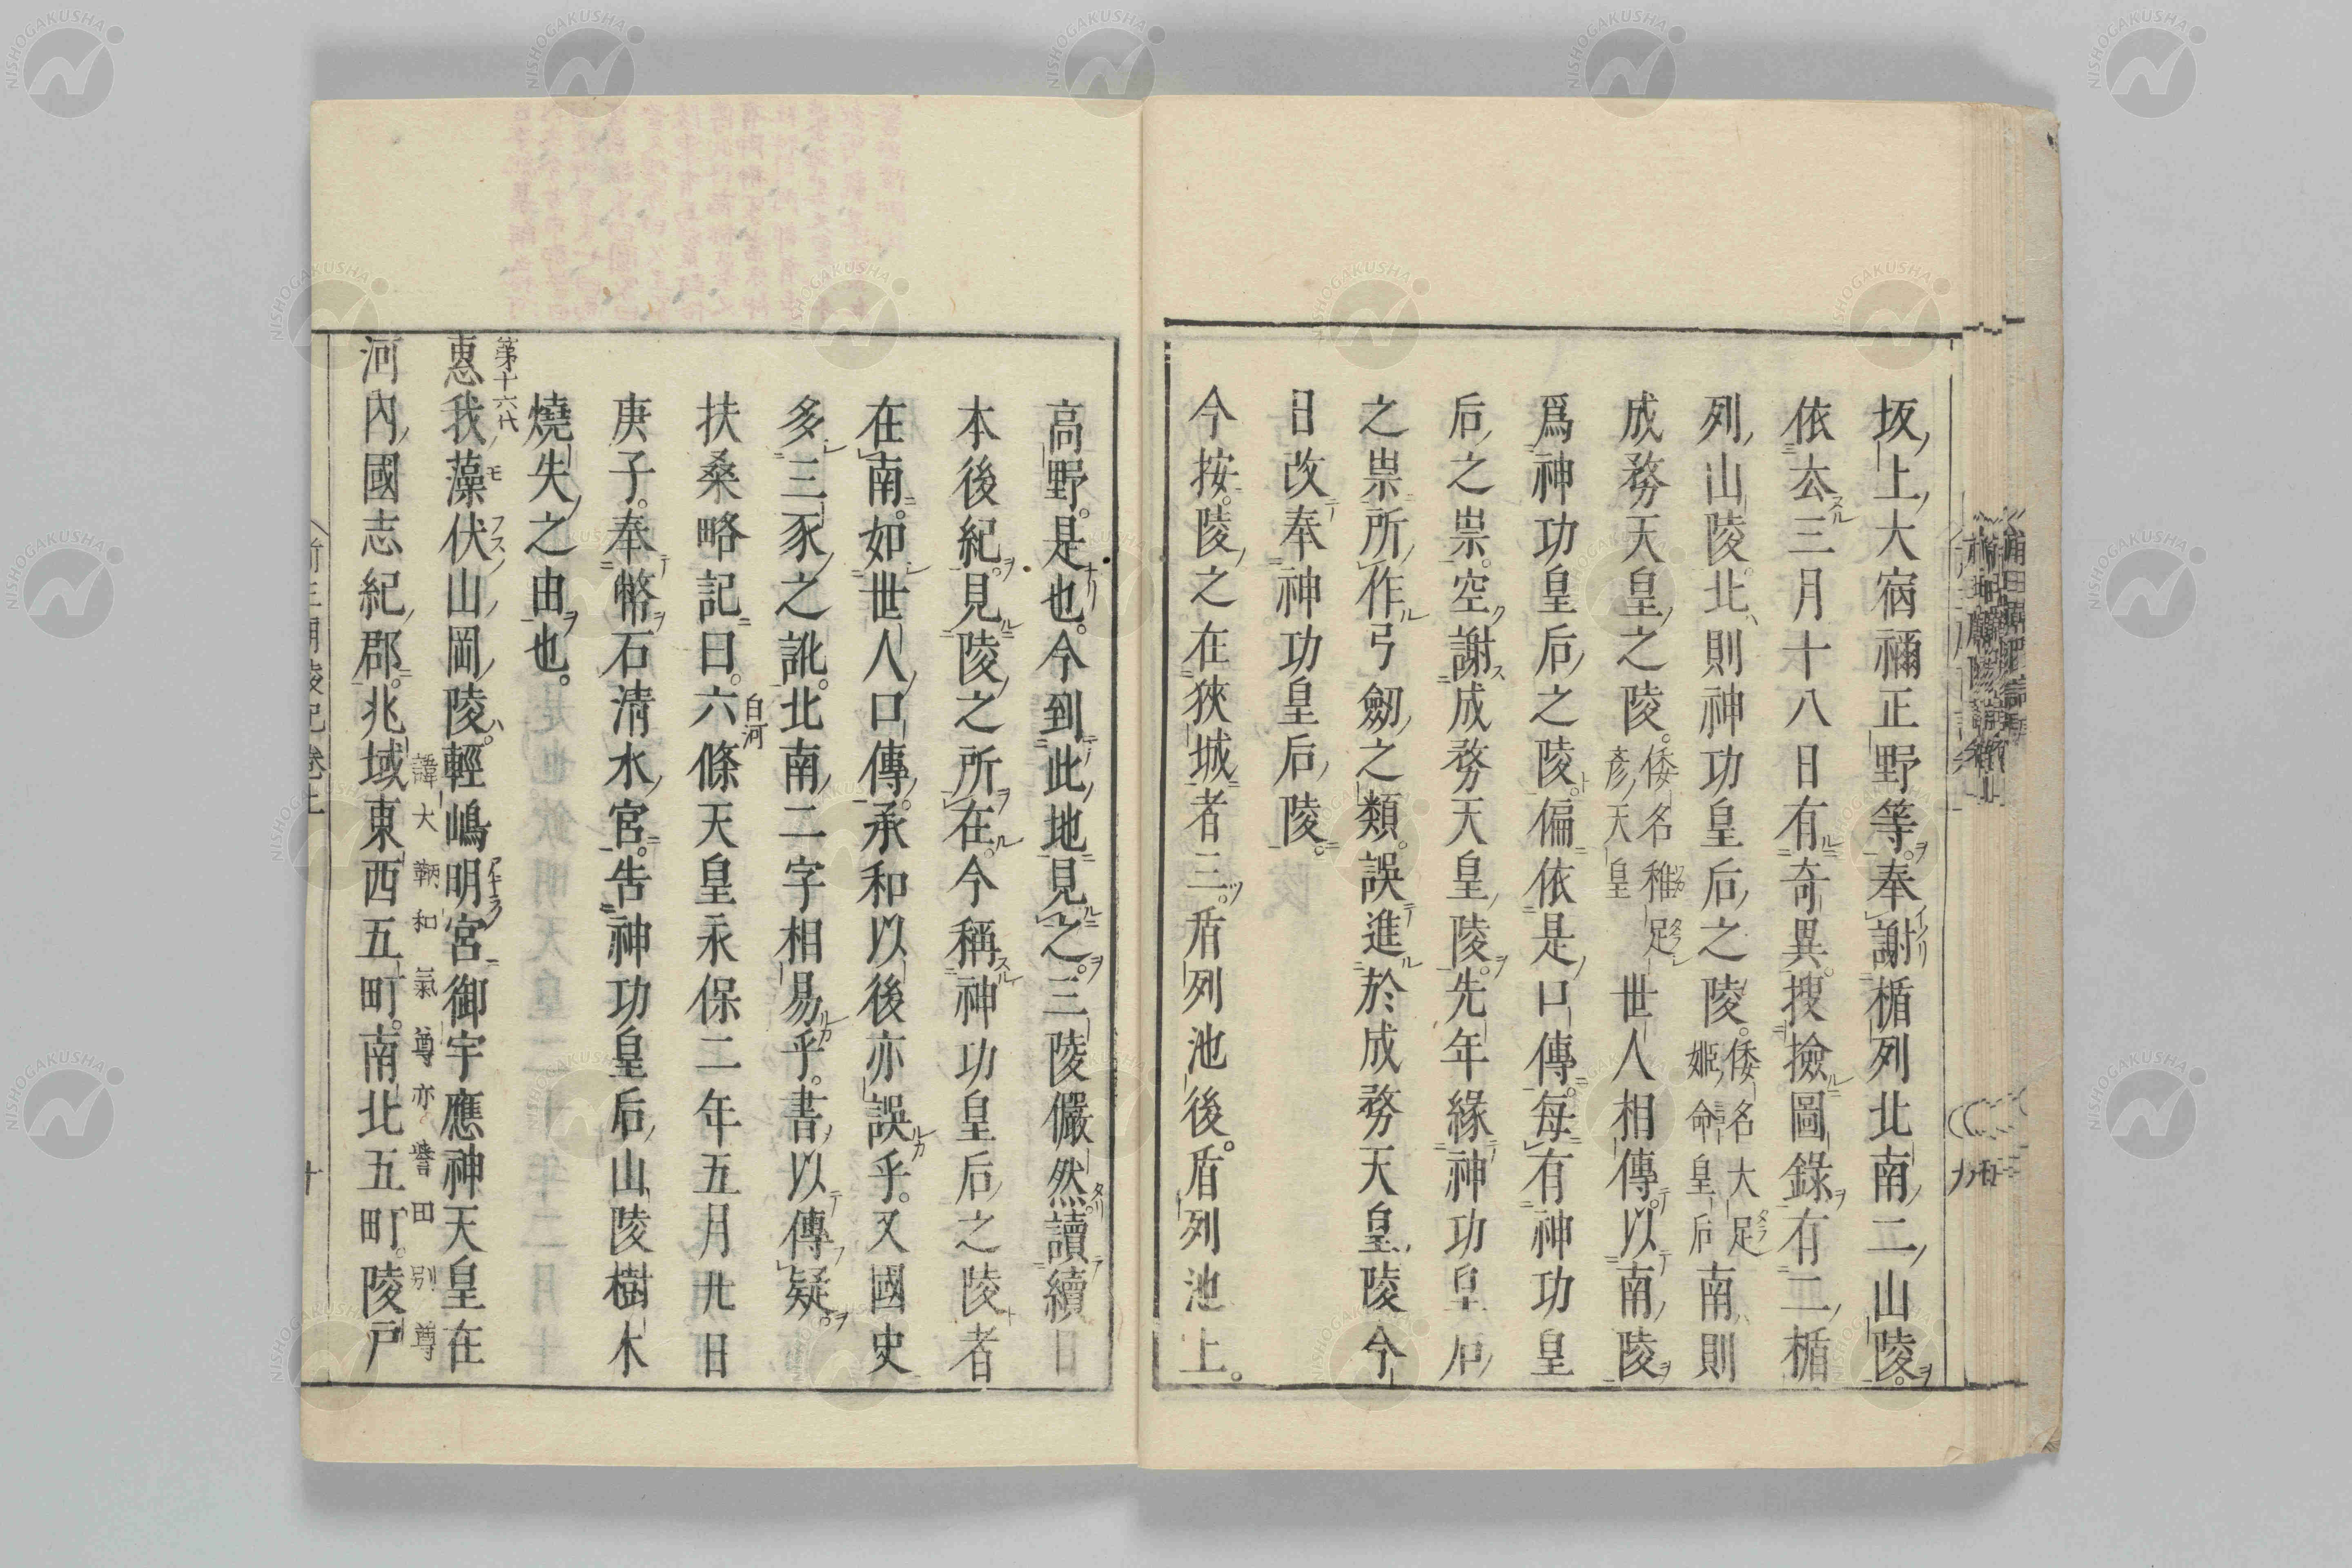 坂上大宿禰正野等奉謝楯列北南二山陵
依去三月十八日有奇異搜撿圖錄有二楯
列山陵北則神功皇后之陵倭名大足姬命皇后南則
成務天皇之陵倭名稚足彥天皇世人相傳以南陵
爲神功皇后之陵偏依是口傳每有神功皇
后之祟空謝成務天皇陵先年緣神功皇后
之祟所作弓劒之類誤進於成務天皇陵今
日改奉神功皇后陵
今按陵之在狹城者三盾列池後盾列池上
高野是也今到此地見之三陵儼然讀續日
本後紀見陵之所在今稱神功皇后之陵者
在南如世人口傳承和以後亦誤乎又國史
多三豕之訛北南二字相易乎書以傳疑
扶桑略記曰六條白河天皇永保二年五月卅日
庚子奉幣石清水宮告神功皇后山陵樹木
燒失之由也
第十六代
惠我藻伏山岡陵輕嶋明宮御宇應神天皇在
諱大鞆和氣尊亦譽田別尊
河內國志紀郡兆域東西五町南北五町陵戶